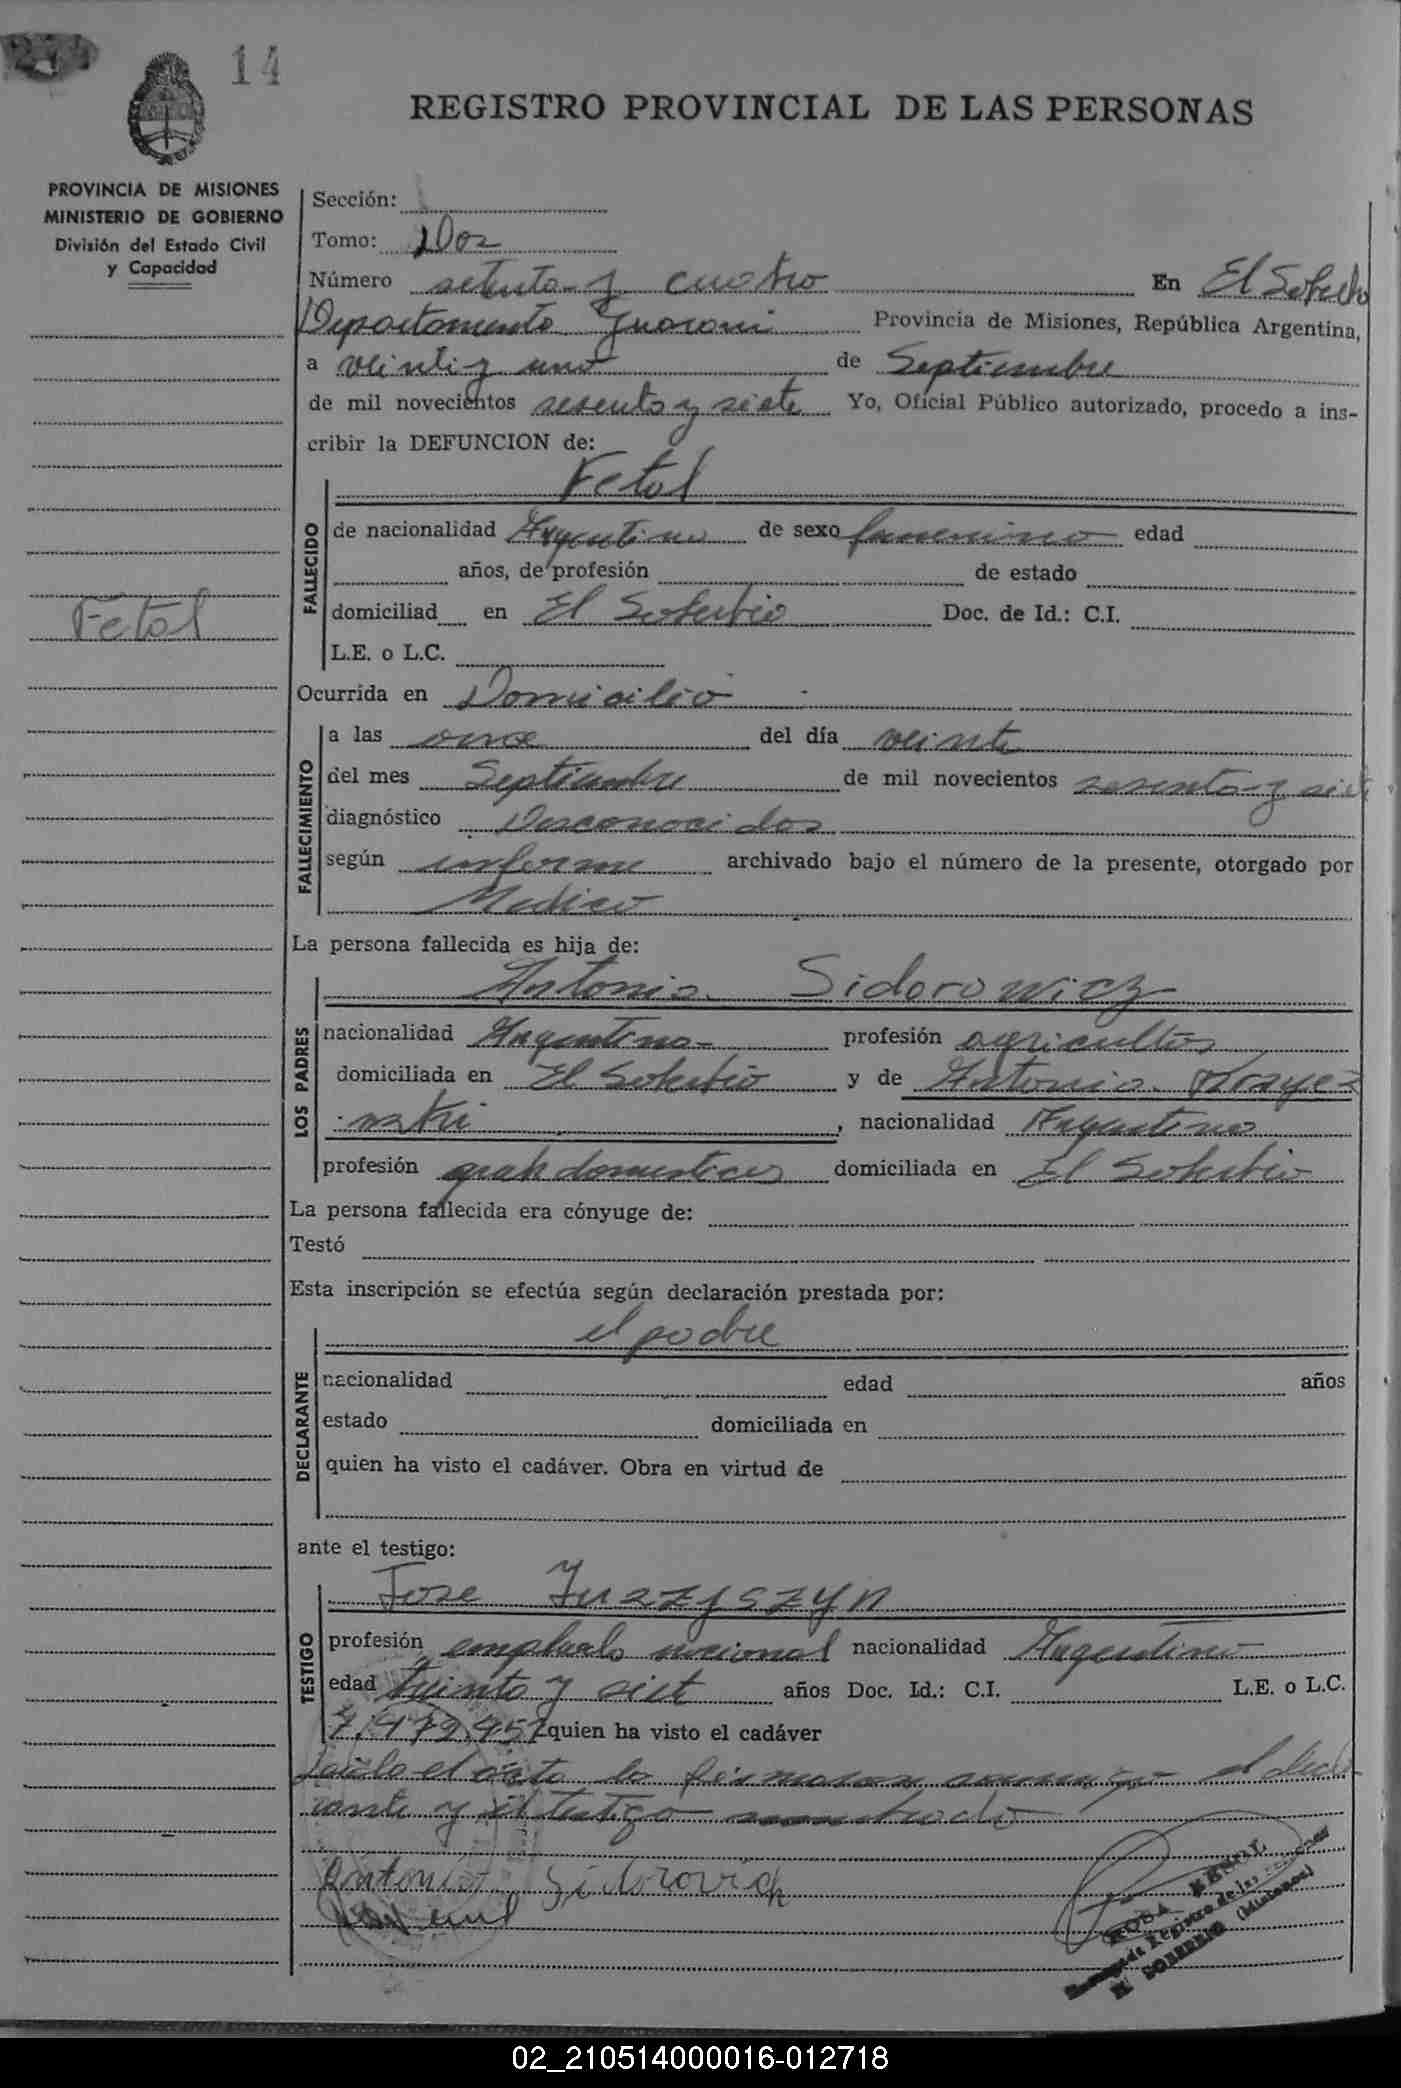 14
REGISTRO PROVINCIAL DE LAS PERSONAS
PROVINCIA DE MISIONES
MINISTERIO DE GOBIERNO
División del Estado Civil
y Capacidad
Sección:
Tomo: Dos
Número setenta y cuatro En El Soberbio
Departamento Guarani Provincia de Misiones, República Argentina,
a veinti y uno de Septiembre
de mil novecientos sesenta y siete Yo, Oficial Público autorizado, procedo a ins-
cribir la DEFUNCION de:
Fetal
FALLECIDO
de nacionalidad Argentina de sexo femenino edad
años, de profesión de estado
Fetal
domiciliad en El Soberbio Doc. de Id.: C.I.
L.E. o L.C.
Ocurrida en Domicilio
FALLECIMIENTO
a las once del día veinte
del mes Septiembre de mil novecientos sesenta y siete
diagnóstico Desconocidos
según informe archivado bajo el número de la presente, otorgado por
Medico
La persona fallecida es hija de:
LOS PADRES
Antonio Sidorowicz
nacionalidad Argentino profesión agricultor
domiciliada en El Soberbio y de Antonia
, nacionalidad Argentina
profesión domesticos domiciliada en El Soberbio
La persona fallecida era cónyuge de:
Testó
Esta inscripción se efectúa según declaración prestada por:
DECLARANTE
el padre
nacionalidad edad años
estado domiciliada en
quien ha visto el cadáver. Obra en virtud de
ante el testigo:
TESTIGO
Jose Juzzyszyn
profesión empleado nacional nacionalidad Argentino
edad treinta y siete años Doc. Id.: C.I. L.E. o L.C.
7.479.457 quien ha visto el cadáver
el acta la firmaron conmigo el decla
rante y el testigo
Antonio Sidorovich
ROSA
Registro de las Personas
El SOBERBIO (Misiones)
02_210514000016-012718